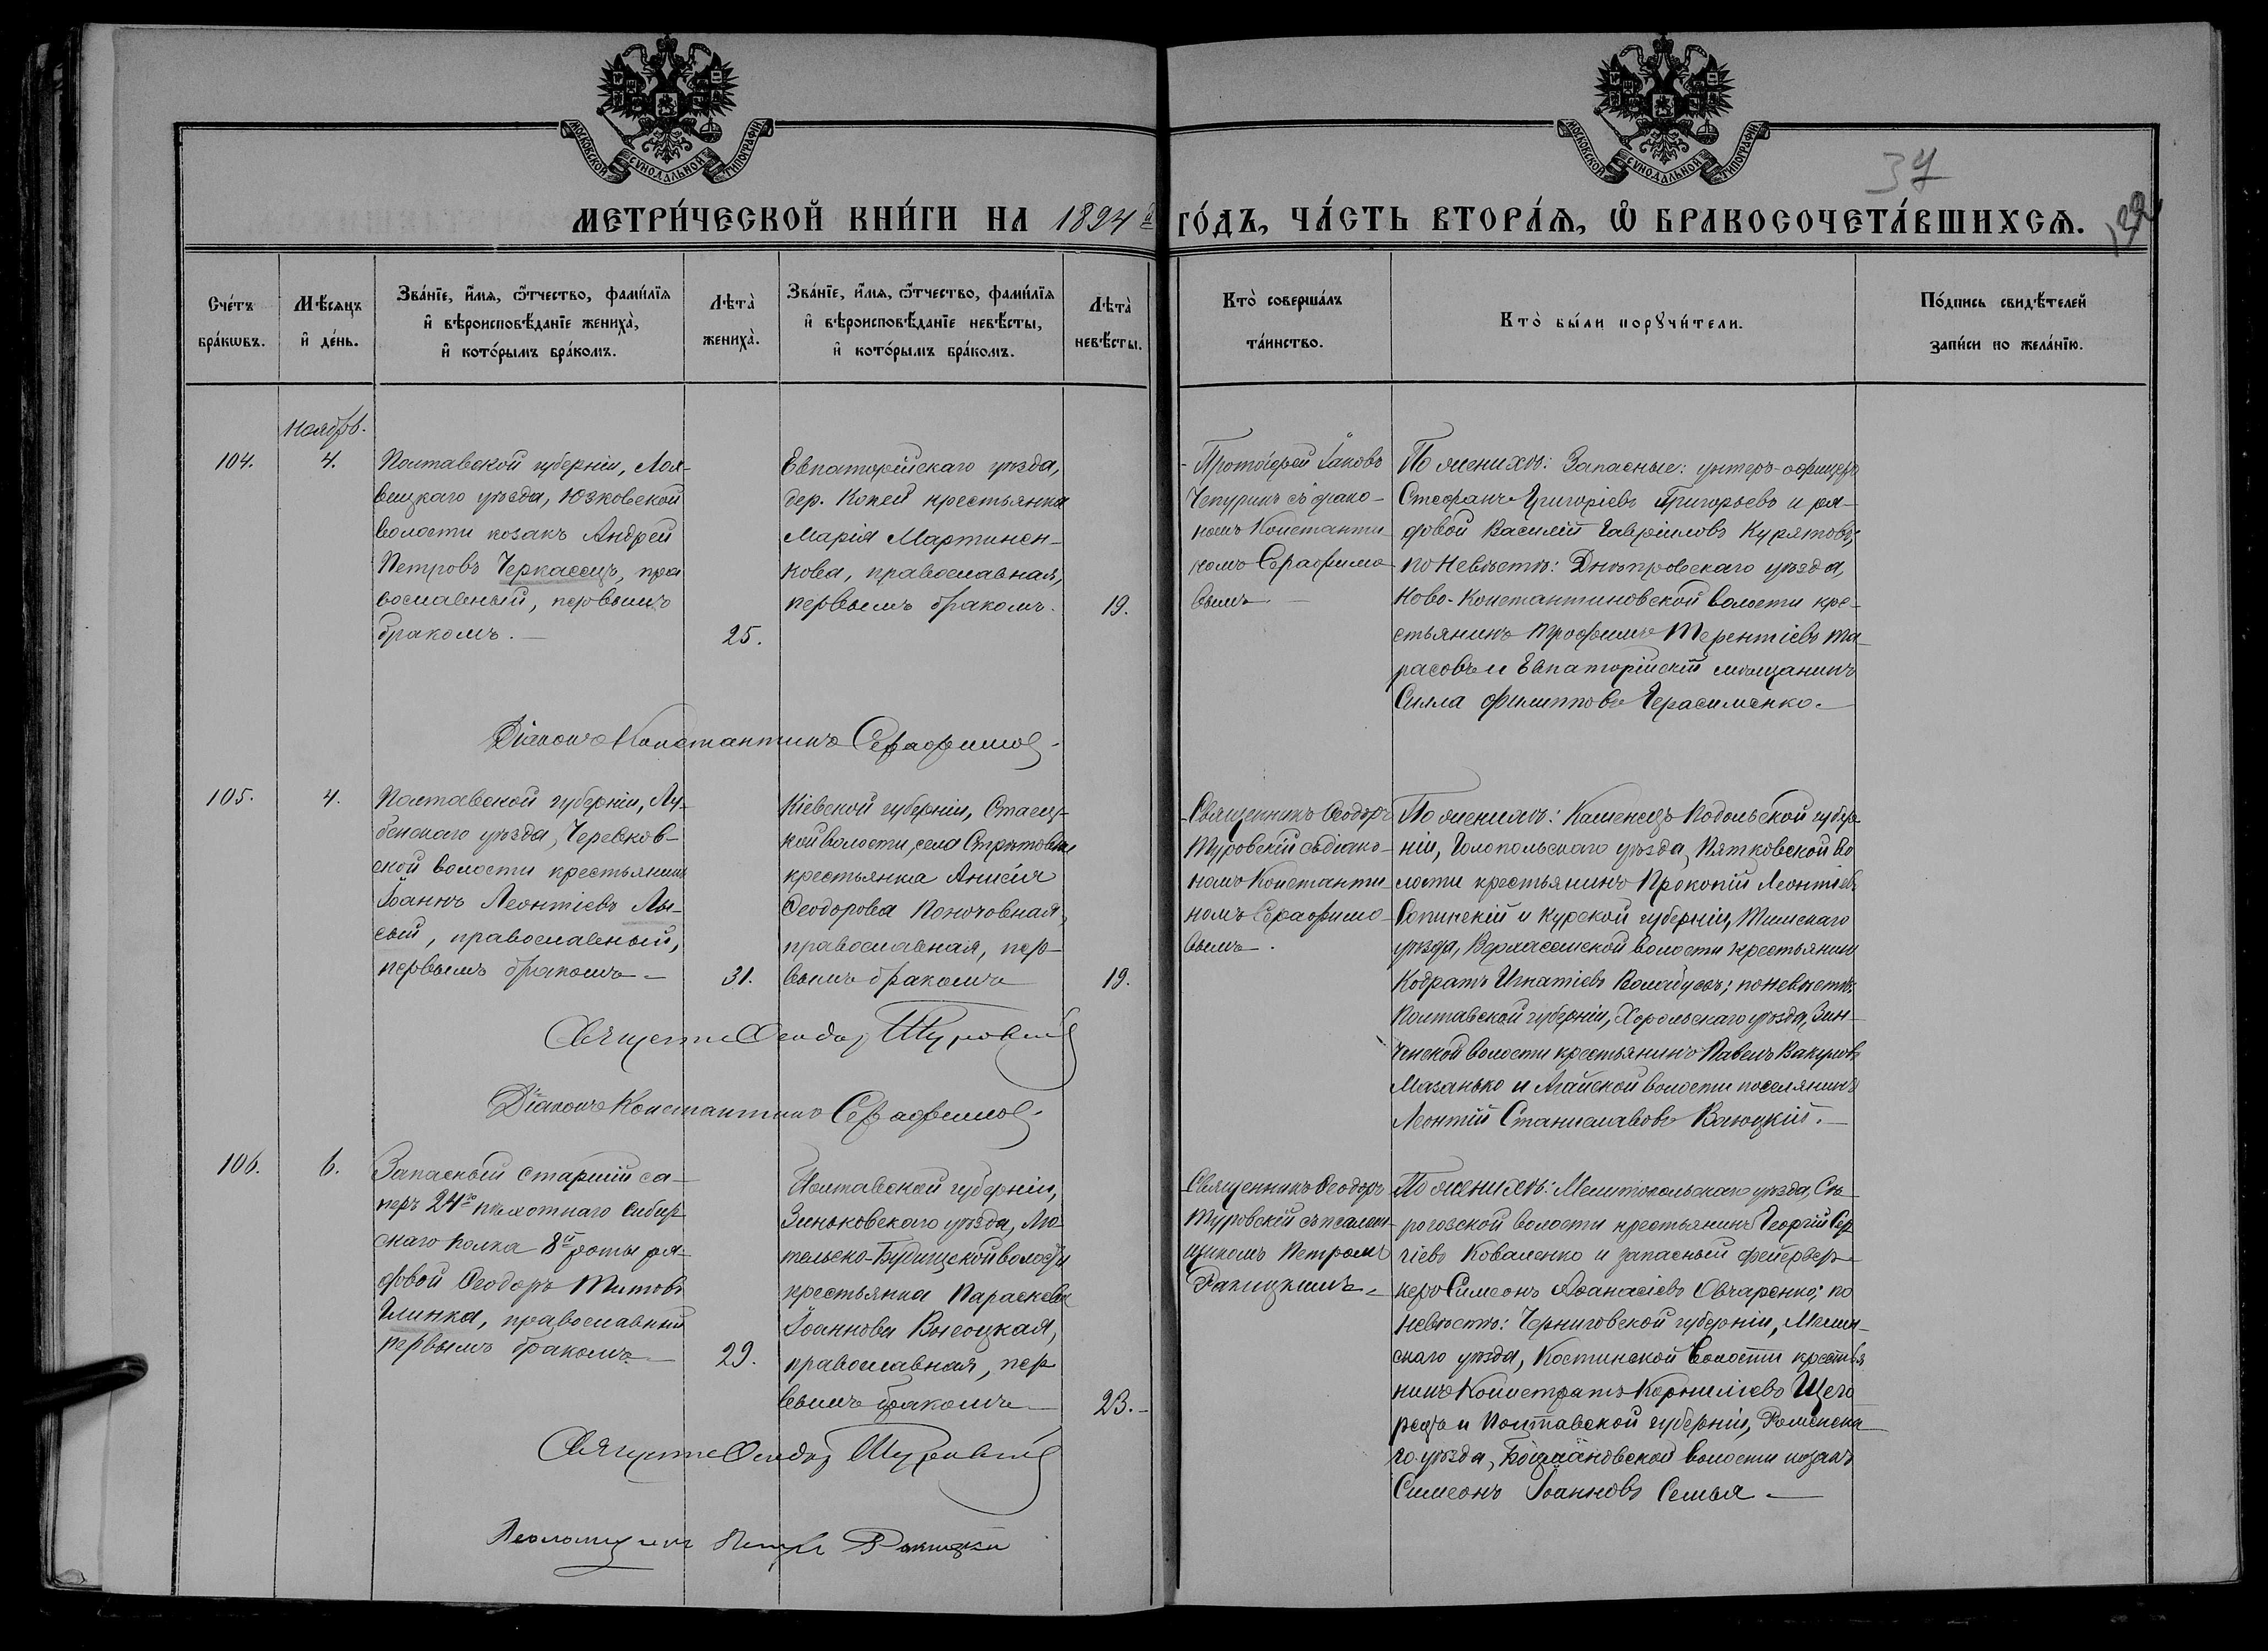 МОСКОВСКОЙ СѴНОДАЛЬНОЙ ТИПОГРАФІИ
МОСКОВСКОЙ СѴНОДАЛЬНОЙ ТИПОГРАФІИ
37
МЕТРИ́ЧЕСКОЙ КНИ́ГИ НА 1894й ГО́ДЪ, ЧА́СТЬ ВТОРА́Ѧ, Ѡ҆ БРАКОСОЧЕТА́ВШИХСѦ.
Сче́тъ бра́кѡвъ.
Мѣ́сѧцъ и҆ де́нь.
Зва́нїе, и҆́мѧ, ѻ҆́тчество, фами́лїѧ
и҆ вѣроисповѣ́данїе жениха̀,
и҆ кото́рымъ бра́комъ.
Лѣта̀ жениха̀.
Зва́нїе, и҆́мѧ, ѻ҆́тчество, фами́лїѧ
и҆ вѣроисповѣ́данїе невѣ́сты,
и҆ кото́рымъ бра́комъ.
Лѣта̀ невѣ́сты.
Кто̀ соверша́лъ
та́инство.
Кто̀ бы́ли порꙋчи́тели.
По́дпись свидѣ́телей
запи́си по жела́нїю.
Ноябрь.
104.
4.
Полтавской губерніи, Лох-
вицкаго уѣзда, Юзковской
волости козакъ Андрей
Петровъ Черкасецъ, пра
вославный, первымъ
бракомъ. —
25.
Евпаторійскаго уѣзда,
дер. Копей крестьянка
Марія Мартинен-
кова, православная,
первымъ бракомъ.
19.
Протоіерей Іаковъ
Чепуринъ съ діако-
номъ Константи
номъ Серафимо
вымъ —
По женихѣ: Запасные: унтеръ-офицеръ
Стефанъ Григоріевъ Григорьевъ и ря-
довой Василій Гавріиловъ Курятовъ;
по невѣстѣ: Днѣпровскаго уѣзда,
Ново-Константиновской волости кре-
стьянинъ Трофимъ Терентіевъ Та-
расовъ и Евпаторійскій мѣщанинъ
Силла Филипповъ Герасименко. —
Діаконъ Константинъ Серафимовъ
105.
4.
Полтавской губерніи, Лу-
бенскаго уѣзда, Черевков-
ской волости крестьянинъ
Іоаннъ Леонтіевъ Лы-
сый, православный,
первымъ бракомъ —
31.
Кіевской губерніи, Стаец-
кой волости, села
крестьянка Анисія
Ѳеодорова
православная, пер-
вымъ бракомъ
19.
Священникъ Ѳеодоръ
Туровскій съ діако-
номъ Константи
номъ Серафимо
вымъ.
По женихѣ: Каменецъ Подольской губер-
ніи, уѣзда, Пятковской во
лости крестьянинъ Прокопій Леонтіевъ
и Курской губерніи, Тимскаго
уѣзда, волости крестьянинъ
Кодратъ Игнатіевъ по невѣстѣ:
Полтавской губерніи, Хорольскаго уѣзда, Зин-
ченской волости крестьянинъ Павелъ Вакуловъ
Мазанько и волости поселянинъ
Леонтій Станиславовъ
Священникъ Ѳеодоръ Туровскій
Діаконъ Константинъ Серафимовъ
106.
6.
Запасный старшій са-
перъ 24го пѣхотнаго Сибир
скаго полка 8й роты ря-
довой Ѳеодоръ Титовъ
Глинка, православный
первымъ бракомъ —
29.
Полтавской губерніи,
Зиньковскаго уѣзда, Лю-
тельско-Будищской волости
крестьянка Параскева
Іоаннова Высоцкая,
православная, пер
вымъ бракомъ —
23. —
Священникъ Ѳеодоръ
Туровскій съ псалом-
щикомъ Петромъ
Ракицкимъ —
По женихѣ: Мелитопольскаго уѣзда, Сѣ-
рогозской волости крестьянинъ Георгій Сер
гіевъ Коваленко и запасный фейервер-
керъ Симеонъ Аѳанасіевъ Овчаренко; по
невѣстѣ: Черниговской губерніи,
скаго уѣзда, волости крестья
нинъ Корниліевъ
и Полтавской губерніи, Роменска
го уѣзда, волости козакъ
Симеонъ Іоанновъ Семья —
Священникъ Ѳеодоръ Туровскій
Псаломщикъ Петръ Ракицкій